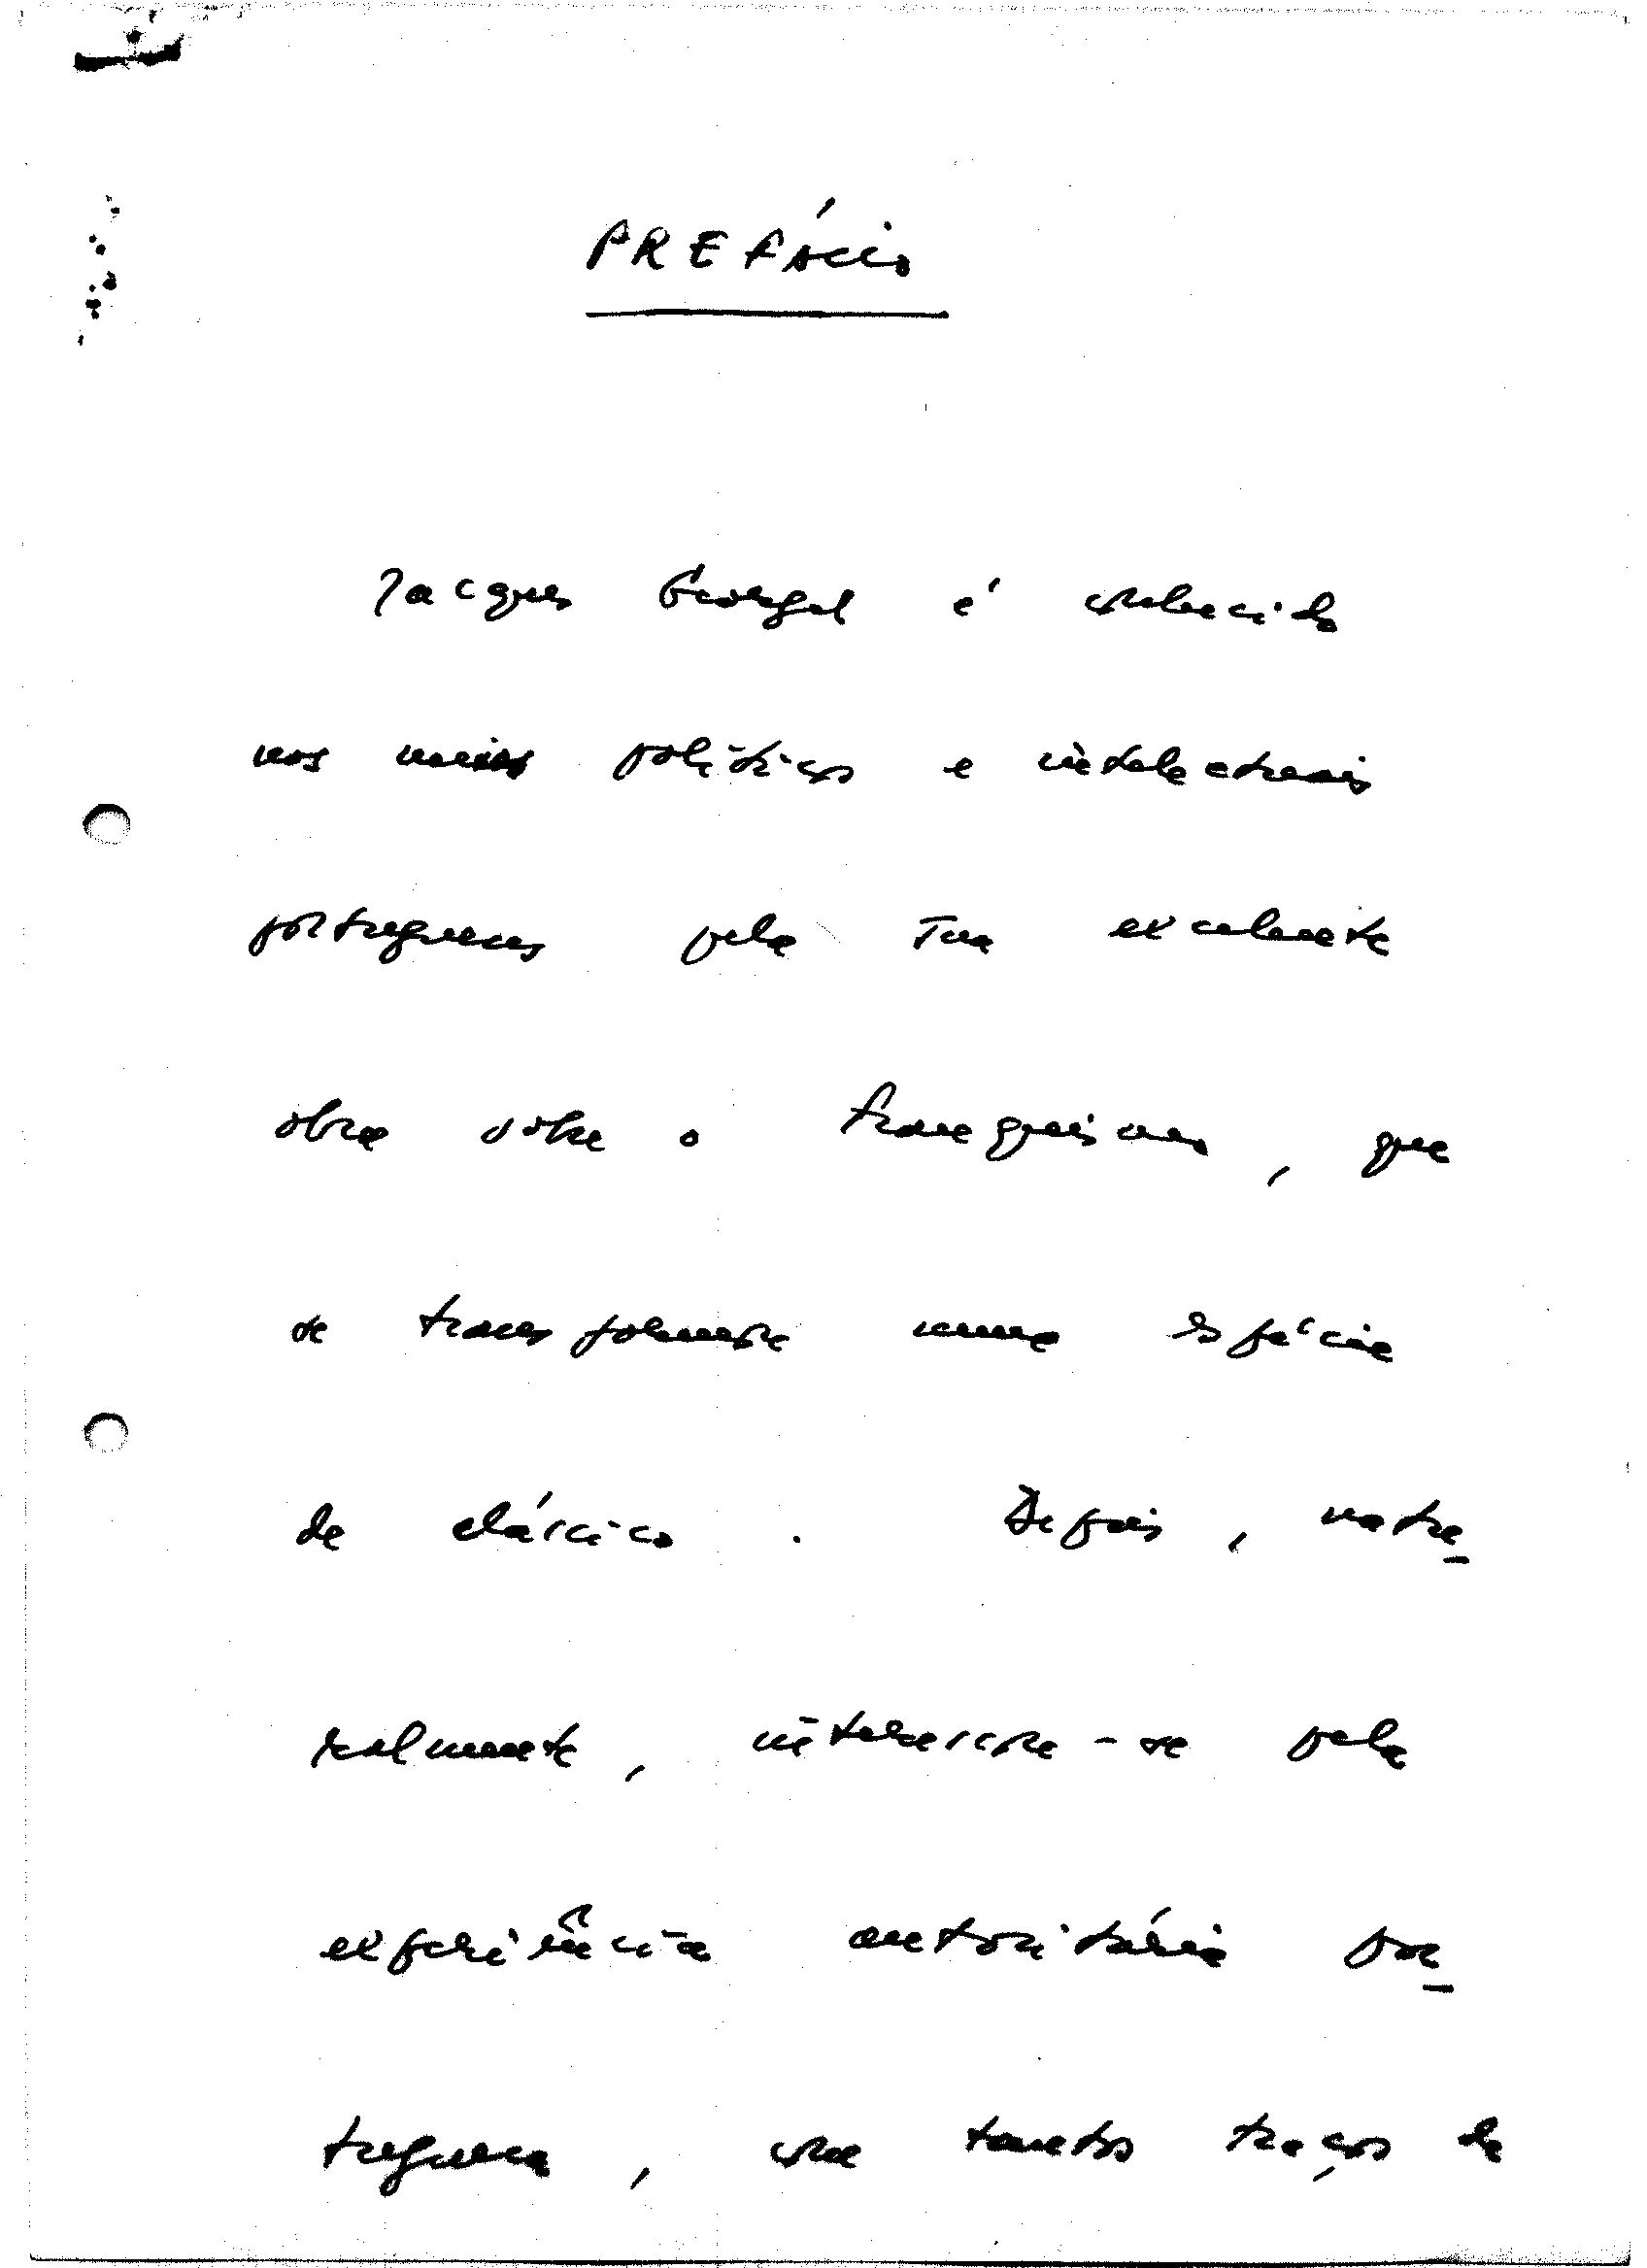 PREFÁCIO
Jacques Georgel é conhecido
nos meios políticos e intelectuais
portugueses pela sua excelente
obra sobre o franquismo, que
se transformou numa espécie
de clássico. Depois, natu-
ralmente, interessou-se pela
experiência autoritária por-
tuguesa, com tantos traços de